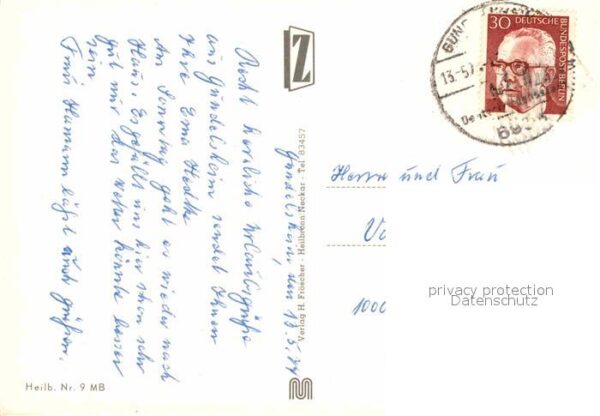 Gundelsheim, den 13.5.74
Recht herzliche Urlaubsgrüße
aus Gundelsheim sendet Ihnen
Ihre Erna Hedtke
Am Sonntag geht es wieder nach
Haus. Es gefällt uns hier schon sehr
gut nur das Wetter könnte besser
sein
Frau Hamann läßt auch grüßen.
Z
Verlag H. Fröscher - Heilbronn Neckar - Tel 83457
Heilb. Nr. 9 MB
30
DEUTSCHE
BUNDESPOST BERLIN
13-5
Herrn und Frau
1000
privacy protection
Datenschutz